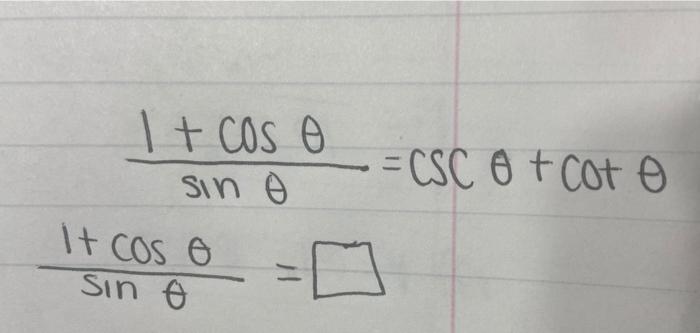 1 + cos θ
sin θ
= csc θ + cot θ
1 + cos θ
sin θ
= □